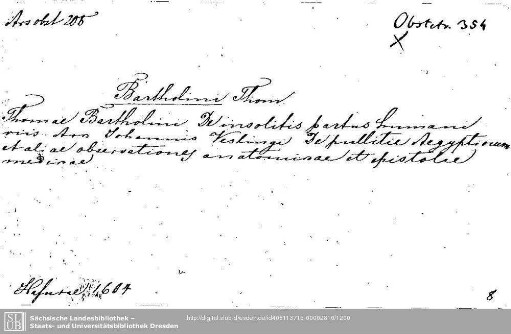 Ars obst 208
Obstetr. 354
Bartholini Thom.
Thomae Bartholini De insolitis partus humani
viis. Acc Johannis Veslingi De pullitie Aegyptiorum
et aliae observationes anatomicae et epistolae
medicae
Hafniae 1664
8
Sächsische Landesbibliothek –
Staats- und Universitätsbibliothek Dresden